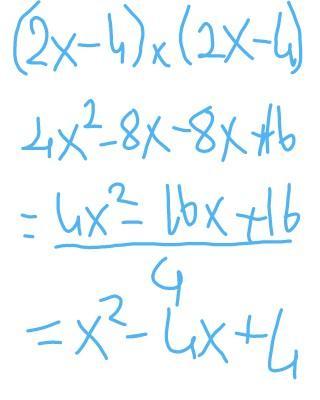 (2x-4)x(2x-4)
4x²-8x-8x+16
= 4x²- 16x+16
4
= x²- 4x+4